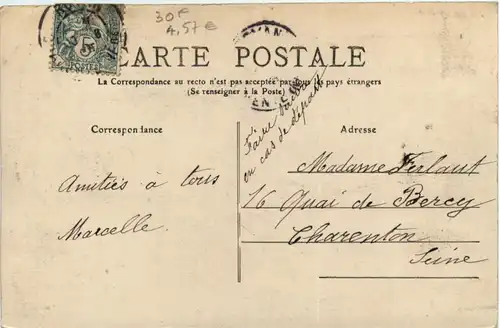 30F
4,57€
CARTE POSTALE
La Correspondance au recto n'est pas acceptée par tous les pays étrangers
(Se renseigner à la Poste)
Correspondance
Adresse
Faire
en cas de départ
Amitiés à tous
Marcelle.
Madame Ferlaut
16 Quai de Bercy
Charenton
Seine